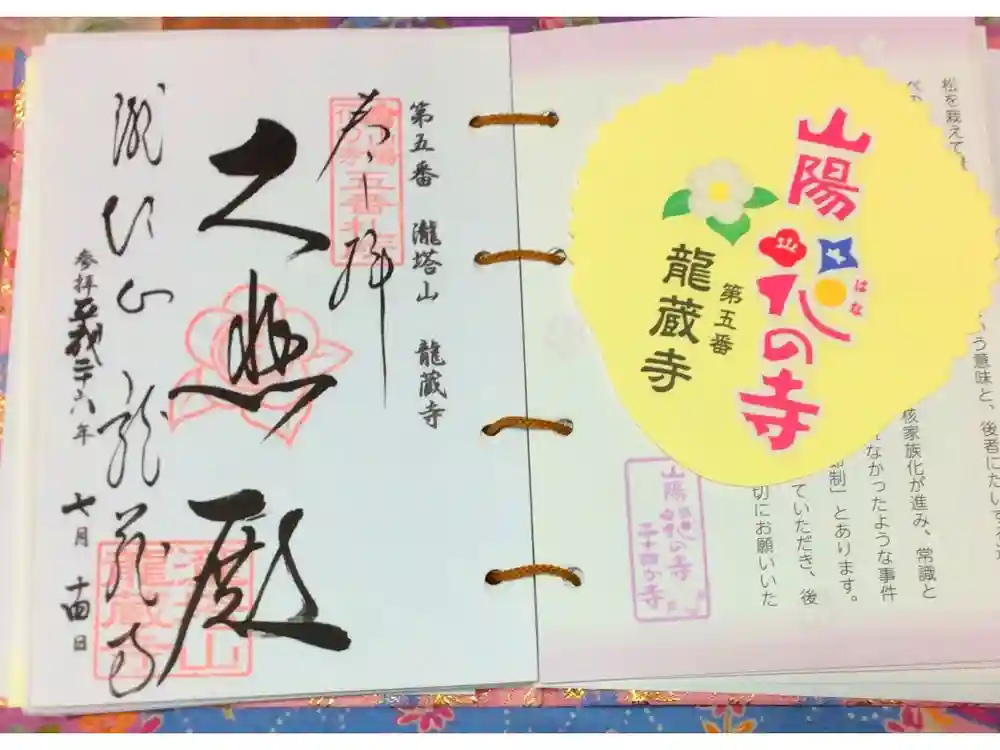 第五番 瀧塔山 龍蔵寺
奉拝
大悲殿
瀧塔山 龍蔵寺
参拝 平成二十六年 七月 十四日
山陽
花の寺
はな
第五番
龍蔵寺
松を栽えて
う意味と、後者にたい
核家族化が進み、常識と
なかったような事件
制」とあります。
ていただき、後
切にお願いいた
山陽花の寺
二十四か寺